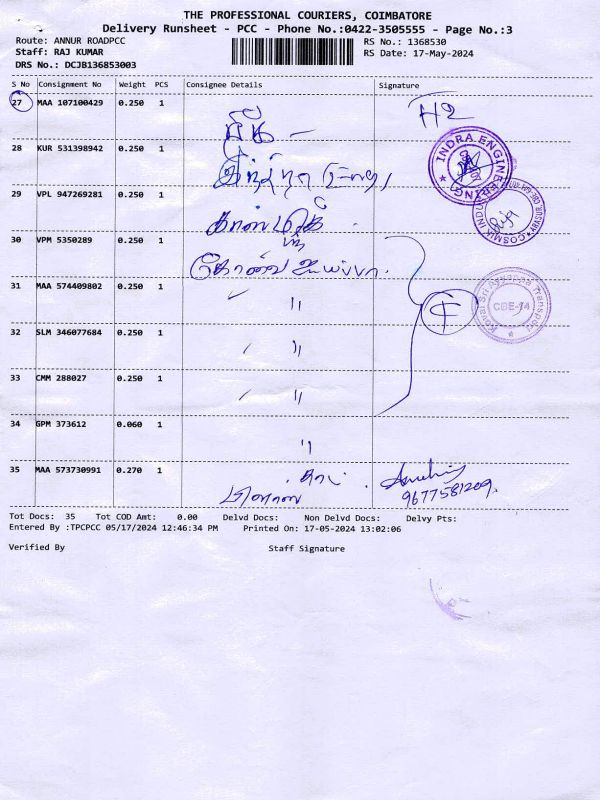 THE PROFESSIONAL COURIERS, COIMBATORE
Delivery Runsheet - PCC - Phone No.:0422-3505555 - Page No.:3
Route: ANNUR ROADPCC
RS No.: 1368530
Staff: RAJ KUMAR
RS Date: 17-May-2024
DRS No.: DCJB136853003
S No Consignment No Weight PCS Consignee Details Signature
27 MAA 107100429 0.250 1
H2
28 KUR 531398942 0.250 1
INDRA ENGINEERING
29 VPL 947269281 0.250 1
30 VPM 5350289 0.250 1
கோவை ஐயப்பா.
31 MAA 574409802 0.250 1 〃
Kovai Sri Ayyappa Transport
CBE-14
32 SLM 346077684 0.250 1 〃
33 CMM 288027 0.250 1 〃
34 GPM 373612 0.060 1 〃
35 MAA 573730991 0.270 1
9677581209.
Tot Docs: 35 Tot COD Amt: 0.00 Delvd Docs: Non Delvd Docs: Delvy Pts:
Entered By :TPCPCC 05/17/2024 12:46:34 PM Printed On: 17-05-2024 13:02:06
Verified By Staff Signature